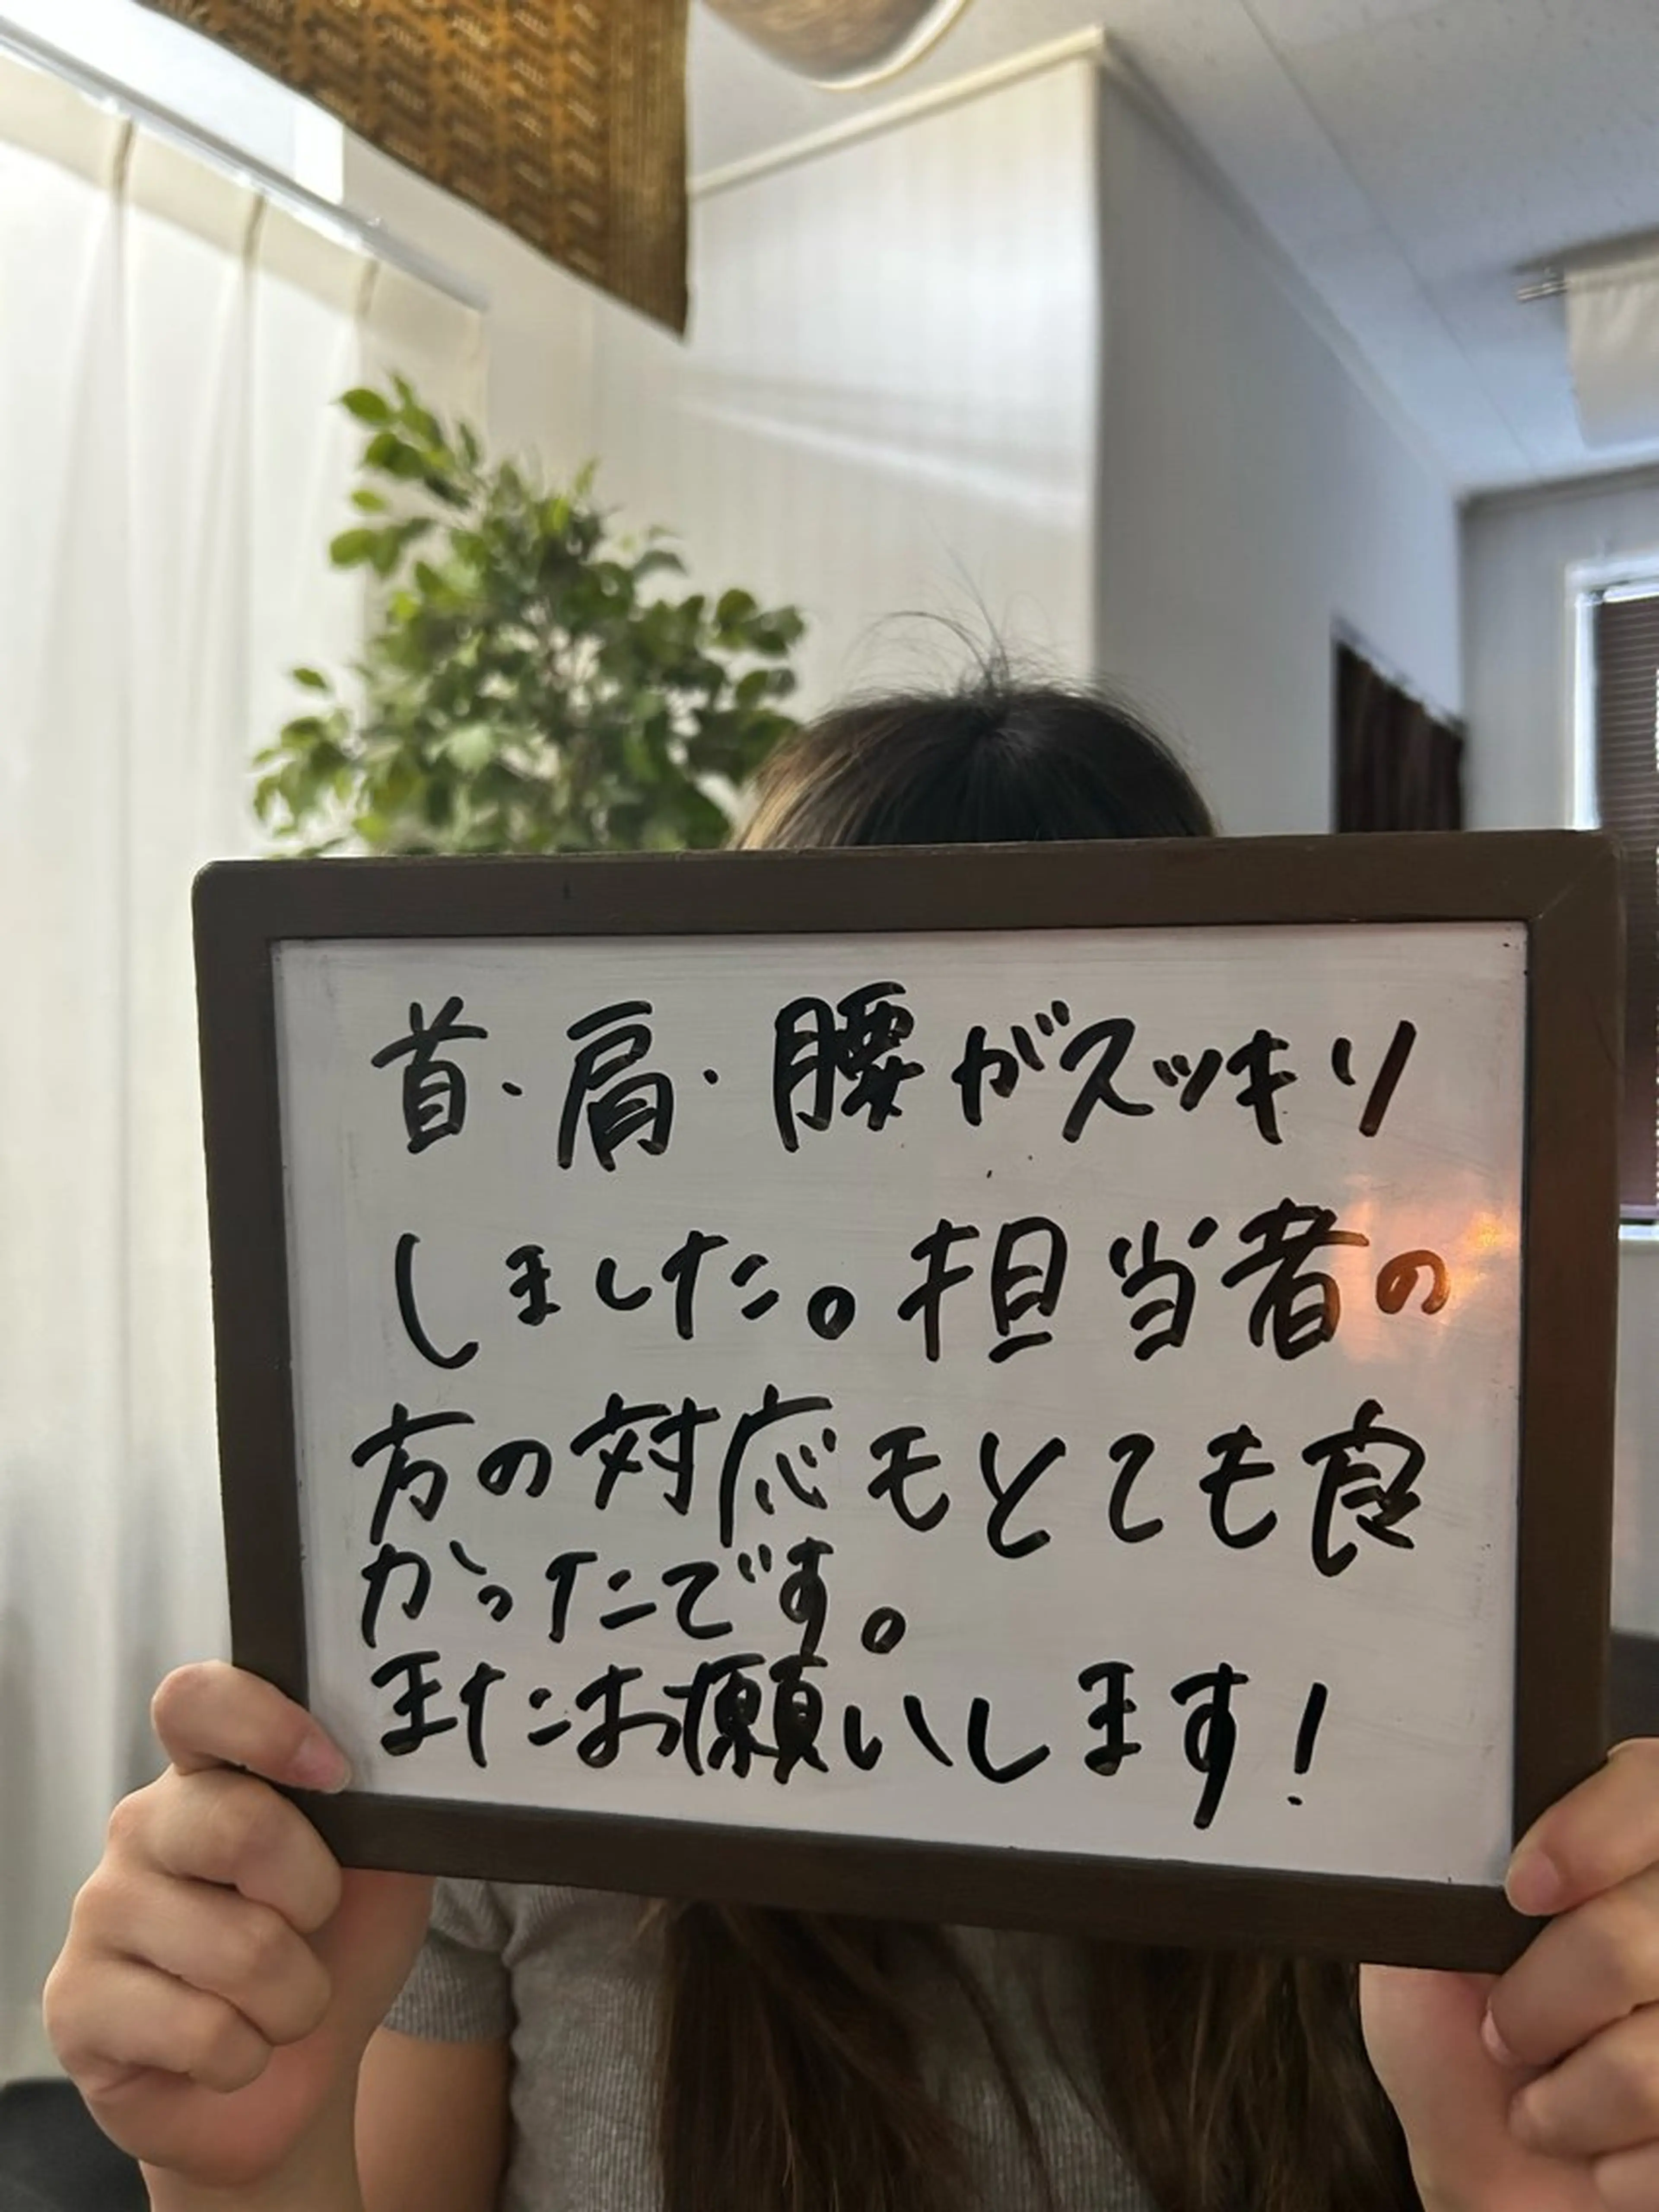 首・肩・腰がスッキリ
しました。担当者の
方の対応もとても良
かったです。
またお願いします！